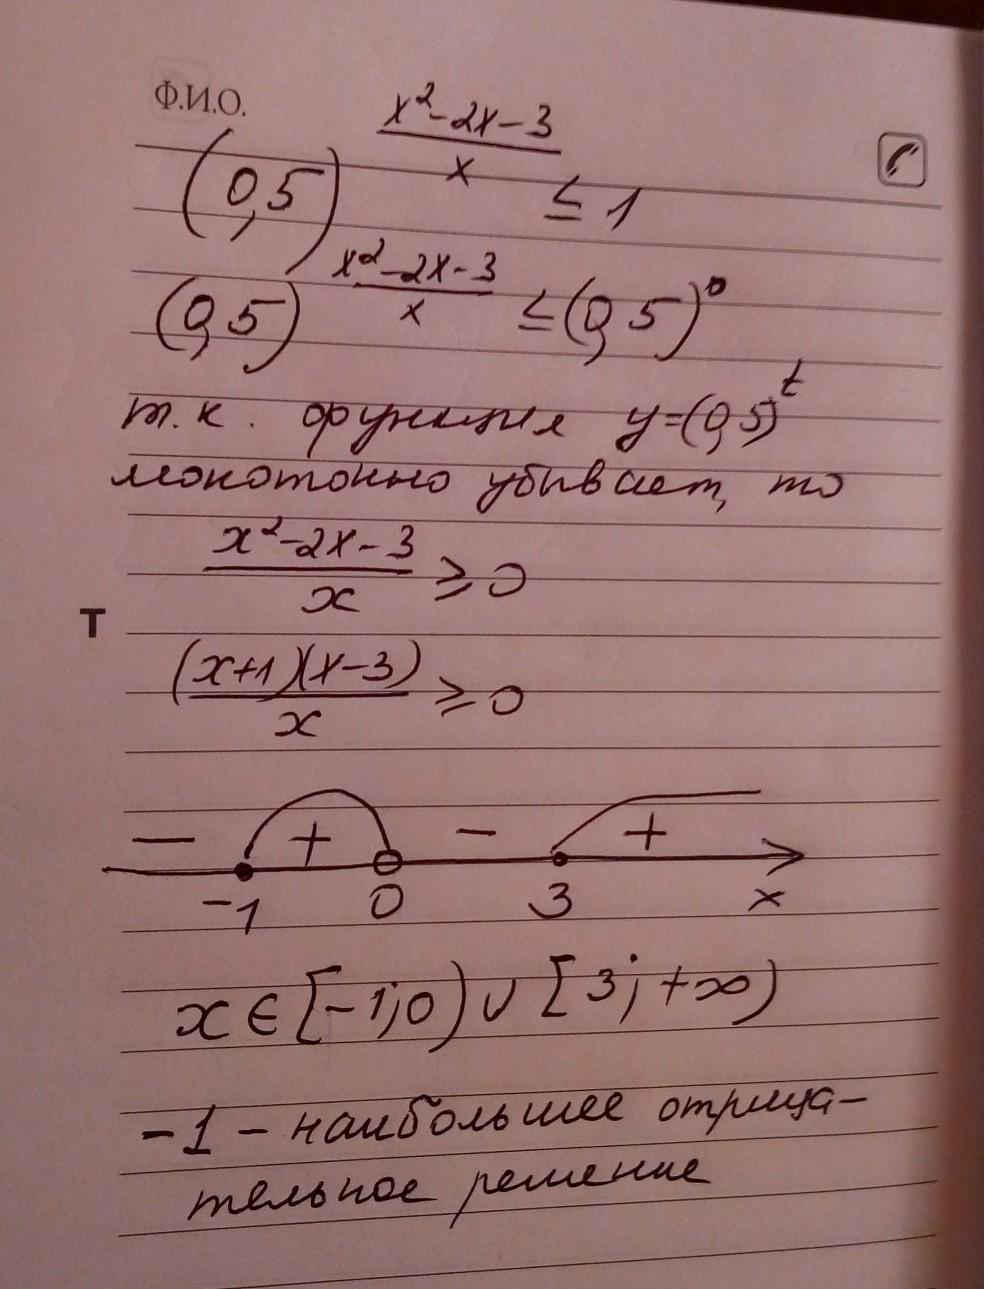 Ф.И.О.
(0,5)^((x²-2x-3)/x) ≤ 1
(0,5)^((x²-2x-3)/x) ≤ (0,5)⁰
т.к. функция y=(0,5)^t
монотонно убывает, то
(x²-2x-3)/x ≥ 0
Т
((x+1)(x-3))/x ≥ 0
− + − +
-1 0 3 x
x ∈ [-1;0) ∪ [3;+∞)
-1 - наибольшее отрица-
тельное решение